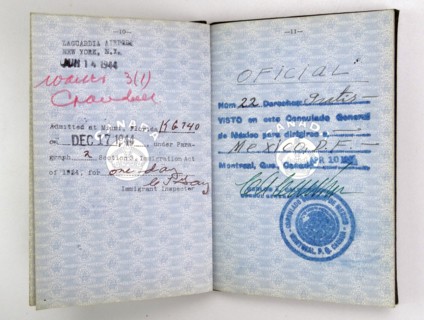 —10—
LAGUARDIA AIRPORT
NEW YORK, N.Y.
JUN 14 1944
3(1)
Admitted at Miami, Florida
on DEC 17 1944 under Para-
graph 2 Section 3, Immigration Act
of 1924, for one day
Immigrant Inspector
CANADA
—11—
OFICIAL
Núm 22 Derechos Gratis
VISTO en este Consulado General
de México para dirigirse a
MEXICO, D.F.
Montreal, Que. Canada APR 10
MONTREAL, P. Q. CANADA